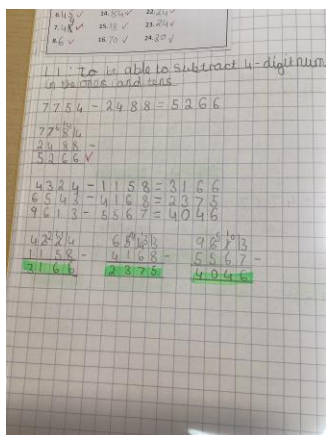 6. 48 ✓ 14. 54 ✓ 22. 24 ✓
7. 48 ✓ 15. 18 ✓ 23. 24 ✓
8. 6 ✓ 16. 70 ✓ 24. 30 ✓
to be able to subtract 4-digit num
in the ones and tens
7754 - 2488 = 5266
2488 -
5266 ✓
4324 - 1158 = 3166
6543 - 4168 = 2375
9613 - 5567 = 4046
1158 - 4168 - 5567 -
3166 2375 4046